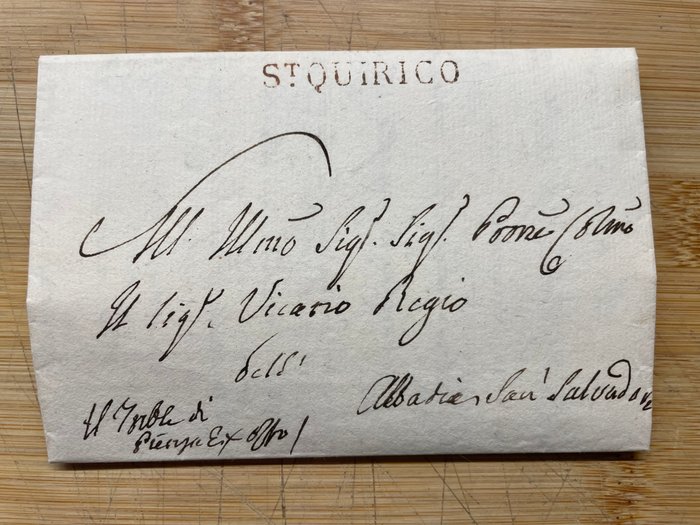 ST QUIRICO
All' Illmo Sigr. Sigr. Pdrone Colmo
Il Sigr. Vicario Regio
dell'
Abbadia San Salvadore
Il Trible di
Pienza Ex Offo